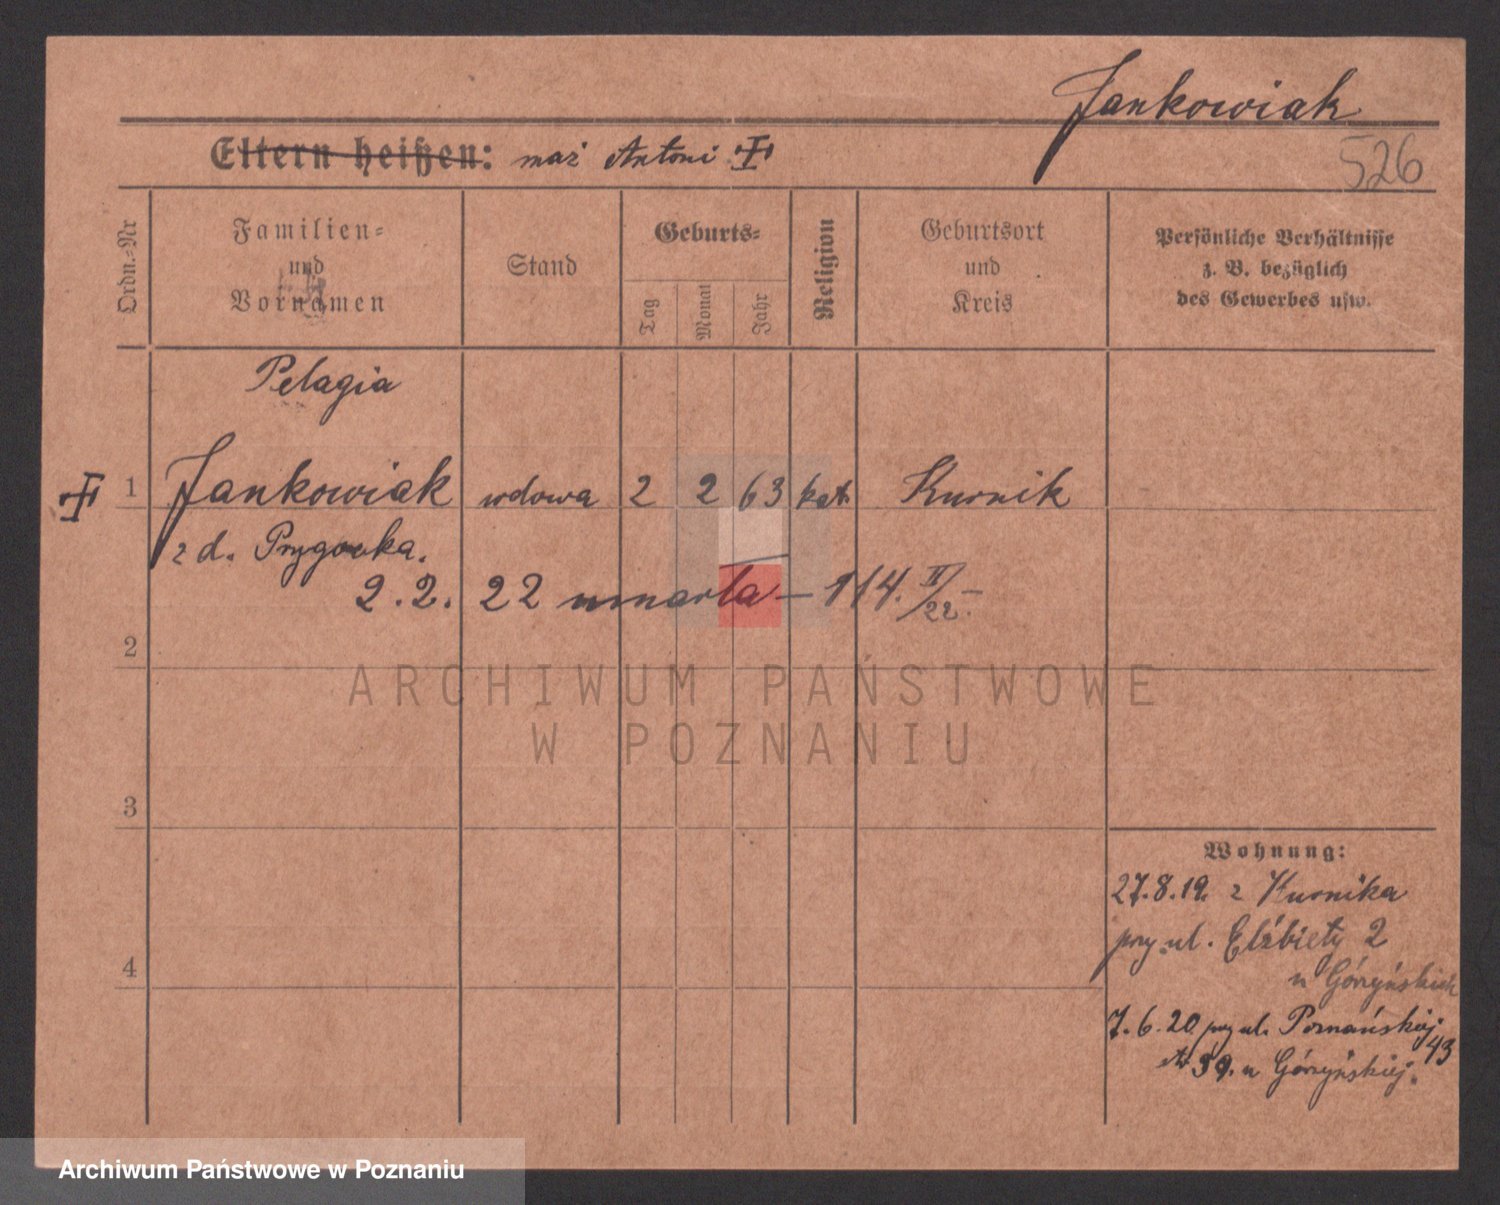 Jankowiak
Eltern heißen: mąż Antoni
526
Ordn.-Nr
Familien- und Vornamen
Stand
Geburts-
Tag
Monat
Jahr
Religion
Geburtsort und Kreis
Persönliche Verhältnisse
z. B. bezüglich
des Gewerbes usw.
Pelagia
1 Jankowiak wdowa 2 2 63 kat. Kurnik
z d. Przygocka.
2.2. 22 umarła — 114. II/22.
2
ARCHIWUM PAŃSTWOWE
W POZNANIU
3
Wohnung:
27.8.19. z Kurnika
przy ul. Elżbiety 2
u Górzyńskich
4
7.6.20 przy ul. Poznańskiej 43
39. u Górzyńskiej.
Archiwum Państwowe w Poznaniu